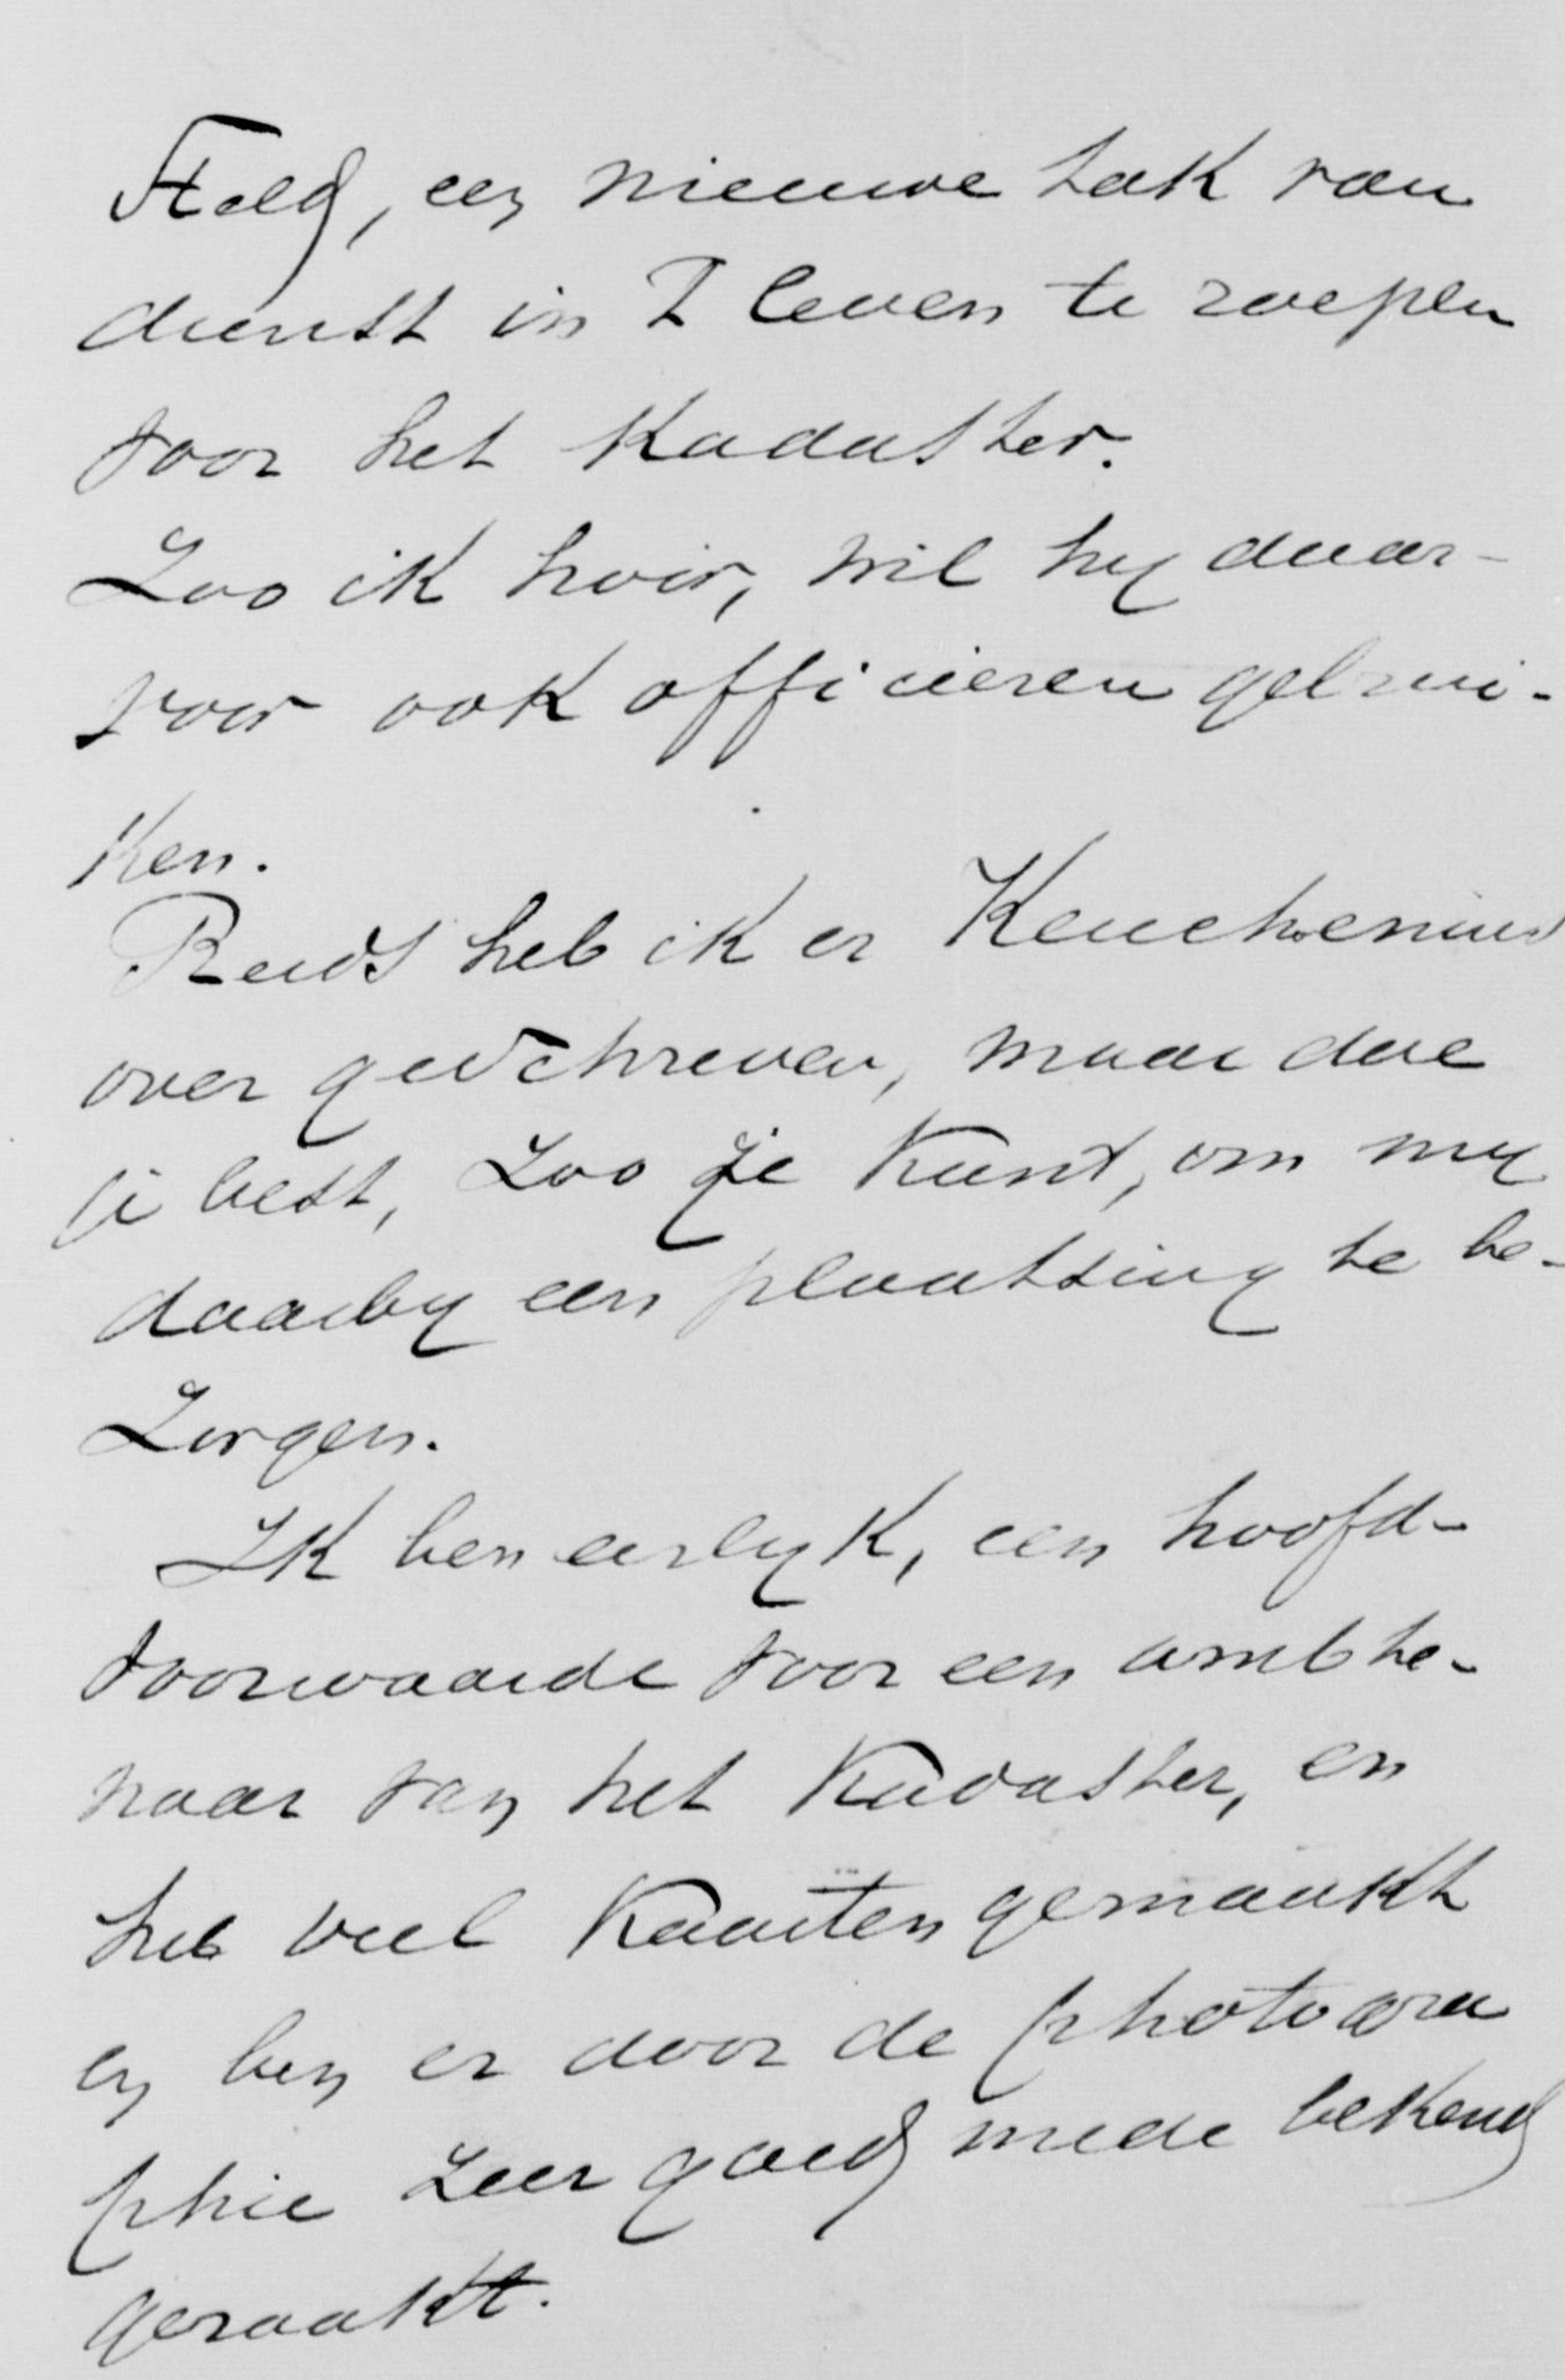 steld, een nieuwe tak van
dienst in 't leven te roepen
voor het Kadaster.
Zoo ik hoor, wil hy daar-
voor ook officieren gebrui-
ken.
Reeds heb ik er Keuchenius
over geschreven, maar doe
je best, zoo je kunt, om my
daarby een plaatsing te be-
zorgen.
Ik ben eerlyk, een hoofd-
voorwaarde voor een ambte-
naar van het Kadaster, en
heb veel kaarten gemaakt
en ben er door de photogra
phie zeer goed mede bekend
geraakt.